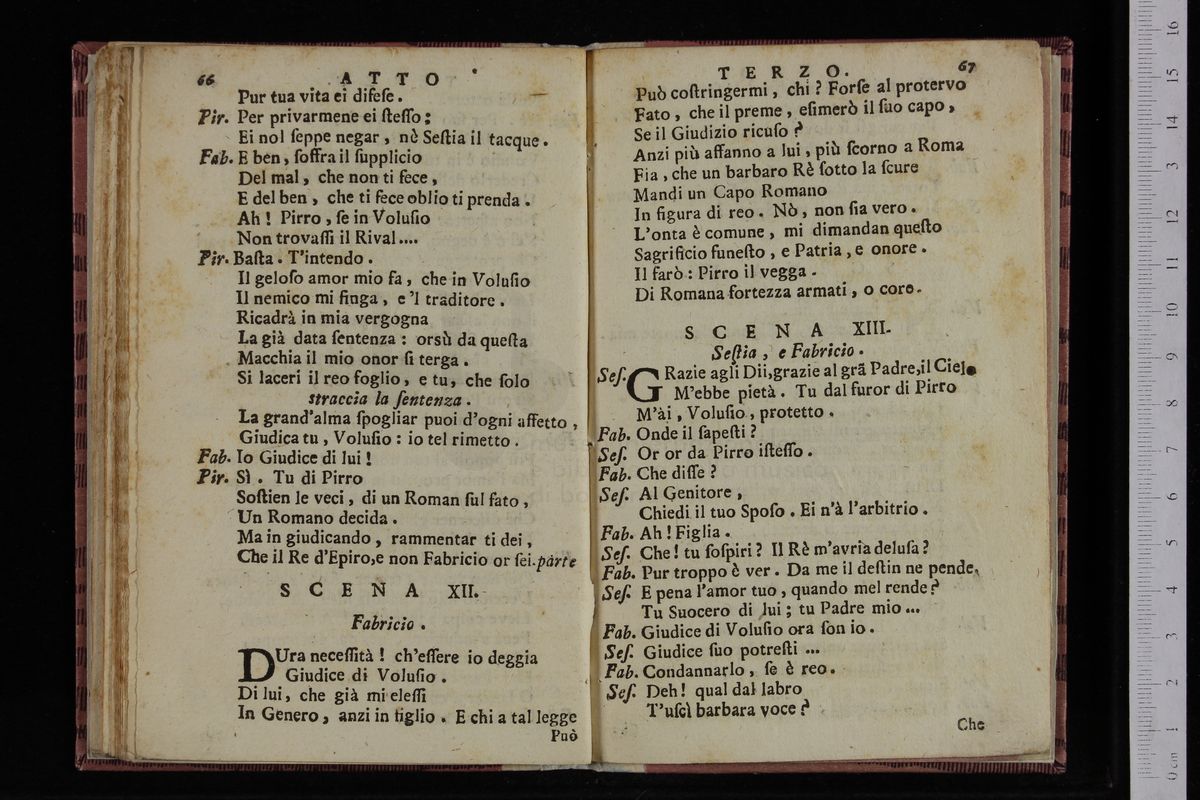 66 ATTO
Pur tua vita ei difese.
Pir. Per privarmene ei steſſo;
Ei nol ſeppe negar, nè Seſtia il tacque.
Fab. E ben, ſoffra il ſupplicio
Del mal, che non ti fece,
E del ben, che ti fece oblio ti prenda.
Ah! Pirro, ſe in Voluſio
Non trovaſſi il Rival....
Pir. Baſta. T'intendo.
Il geloſo amor mio fa, che in Voluſio
Il nemico mi finga, e 'l traditore.
Ricadrà in mia vergogna
La già data ſentenza: orsù da queſta
Macchia il mio onor ſi terga.
Si laceri il reo foglio, e tu, che ſolo
straccia la ſentenza.
La grand'alma ſpogliar puoi d'ogni affetto,
Giudica tu, Voluſio: io tel rimetto.
Fab. Io Giudice di lui!
Pir. Sì. Tu di Pirro
Soſtien le veci, di un Roman ſul fato,
Un Romano decida.
Ma in giudicando, rammentar ti dei,
Che il Re d'Epiro,e non Fabricio or ſei.parte
SCENA XII.
Fabricio.
DUra neceſſità! ch'eſſere io deggia
Giudice di Voluſio.
Di lui, che già mi eleſſi
In Genero, anzi in figlio. E chi a tal legge
Può
TERZO. 67
Può coſtringermi, chi? Forſe al protervo
Fato, che il preme, eſimerò il ſuo capo,
Se il Giudizio ricuſo?
Anzi più affanno a lui, più ſcorno a Roma
Fia, che un barbaro Rè ſotto la ſcure
Mandi un Capo Romano
In figura di reo. Nò, non ſia vero.
L'onta è comune, mi dimandan queſto
Sagrificio funeſto, e Patria, e onore.
Il farò: Pirro il vegga.
Di Romana fortezza armati, o core.
SCENA XIII.
Seſtia, e Fabricio.
Seſ. GRazie agli Dii,grazie al grã Padre,il Cielo
M'ebbe pietà. Tu dal furor di Pirro
M'ài, Voluſio, protetto.
Fab. Onde il ſapeſti?
Seſ. Or or da Pirro iſteſſo.
Fab. Che diſſe?
Seſ. Al Genitore,
Chiedi il tuo Spoſo. Ei n'à l'arbitrio.
Fab. Ah! Figlia.
Seſ. Che! tu ſoſpiri? Il Rè m'avria deluſa?
Fab. Pur troppo è ver. Da me il deſtin ne pende.
Seſ. E pena l'amor tuo, quando mel rende?
Tu Suocero di lui; tu Padre mio...
Fab. Giudice di Voluſio ora ſon io.
Seſ. Giudice ſuo potreſti ...
Fab. Condannarlo, ſe è reo.
Seſ. Deh! qual dal labro
T'uſcì barbara voce?
Che
16
15
14
13
12
11
10
9
8
7
6
5
4
3
2
1
0 cm